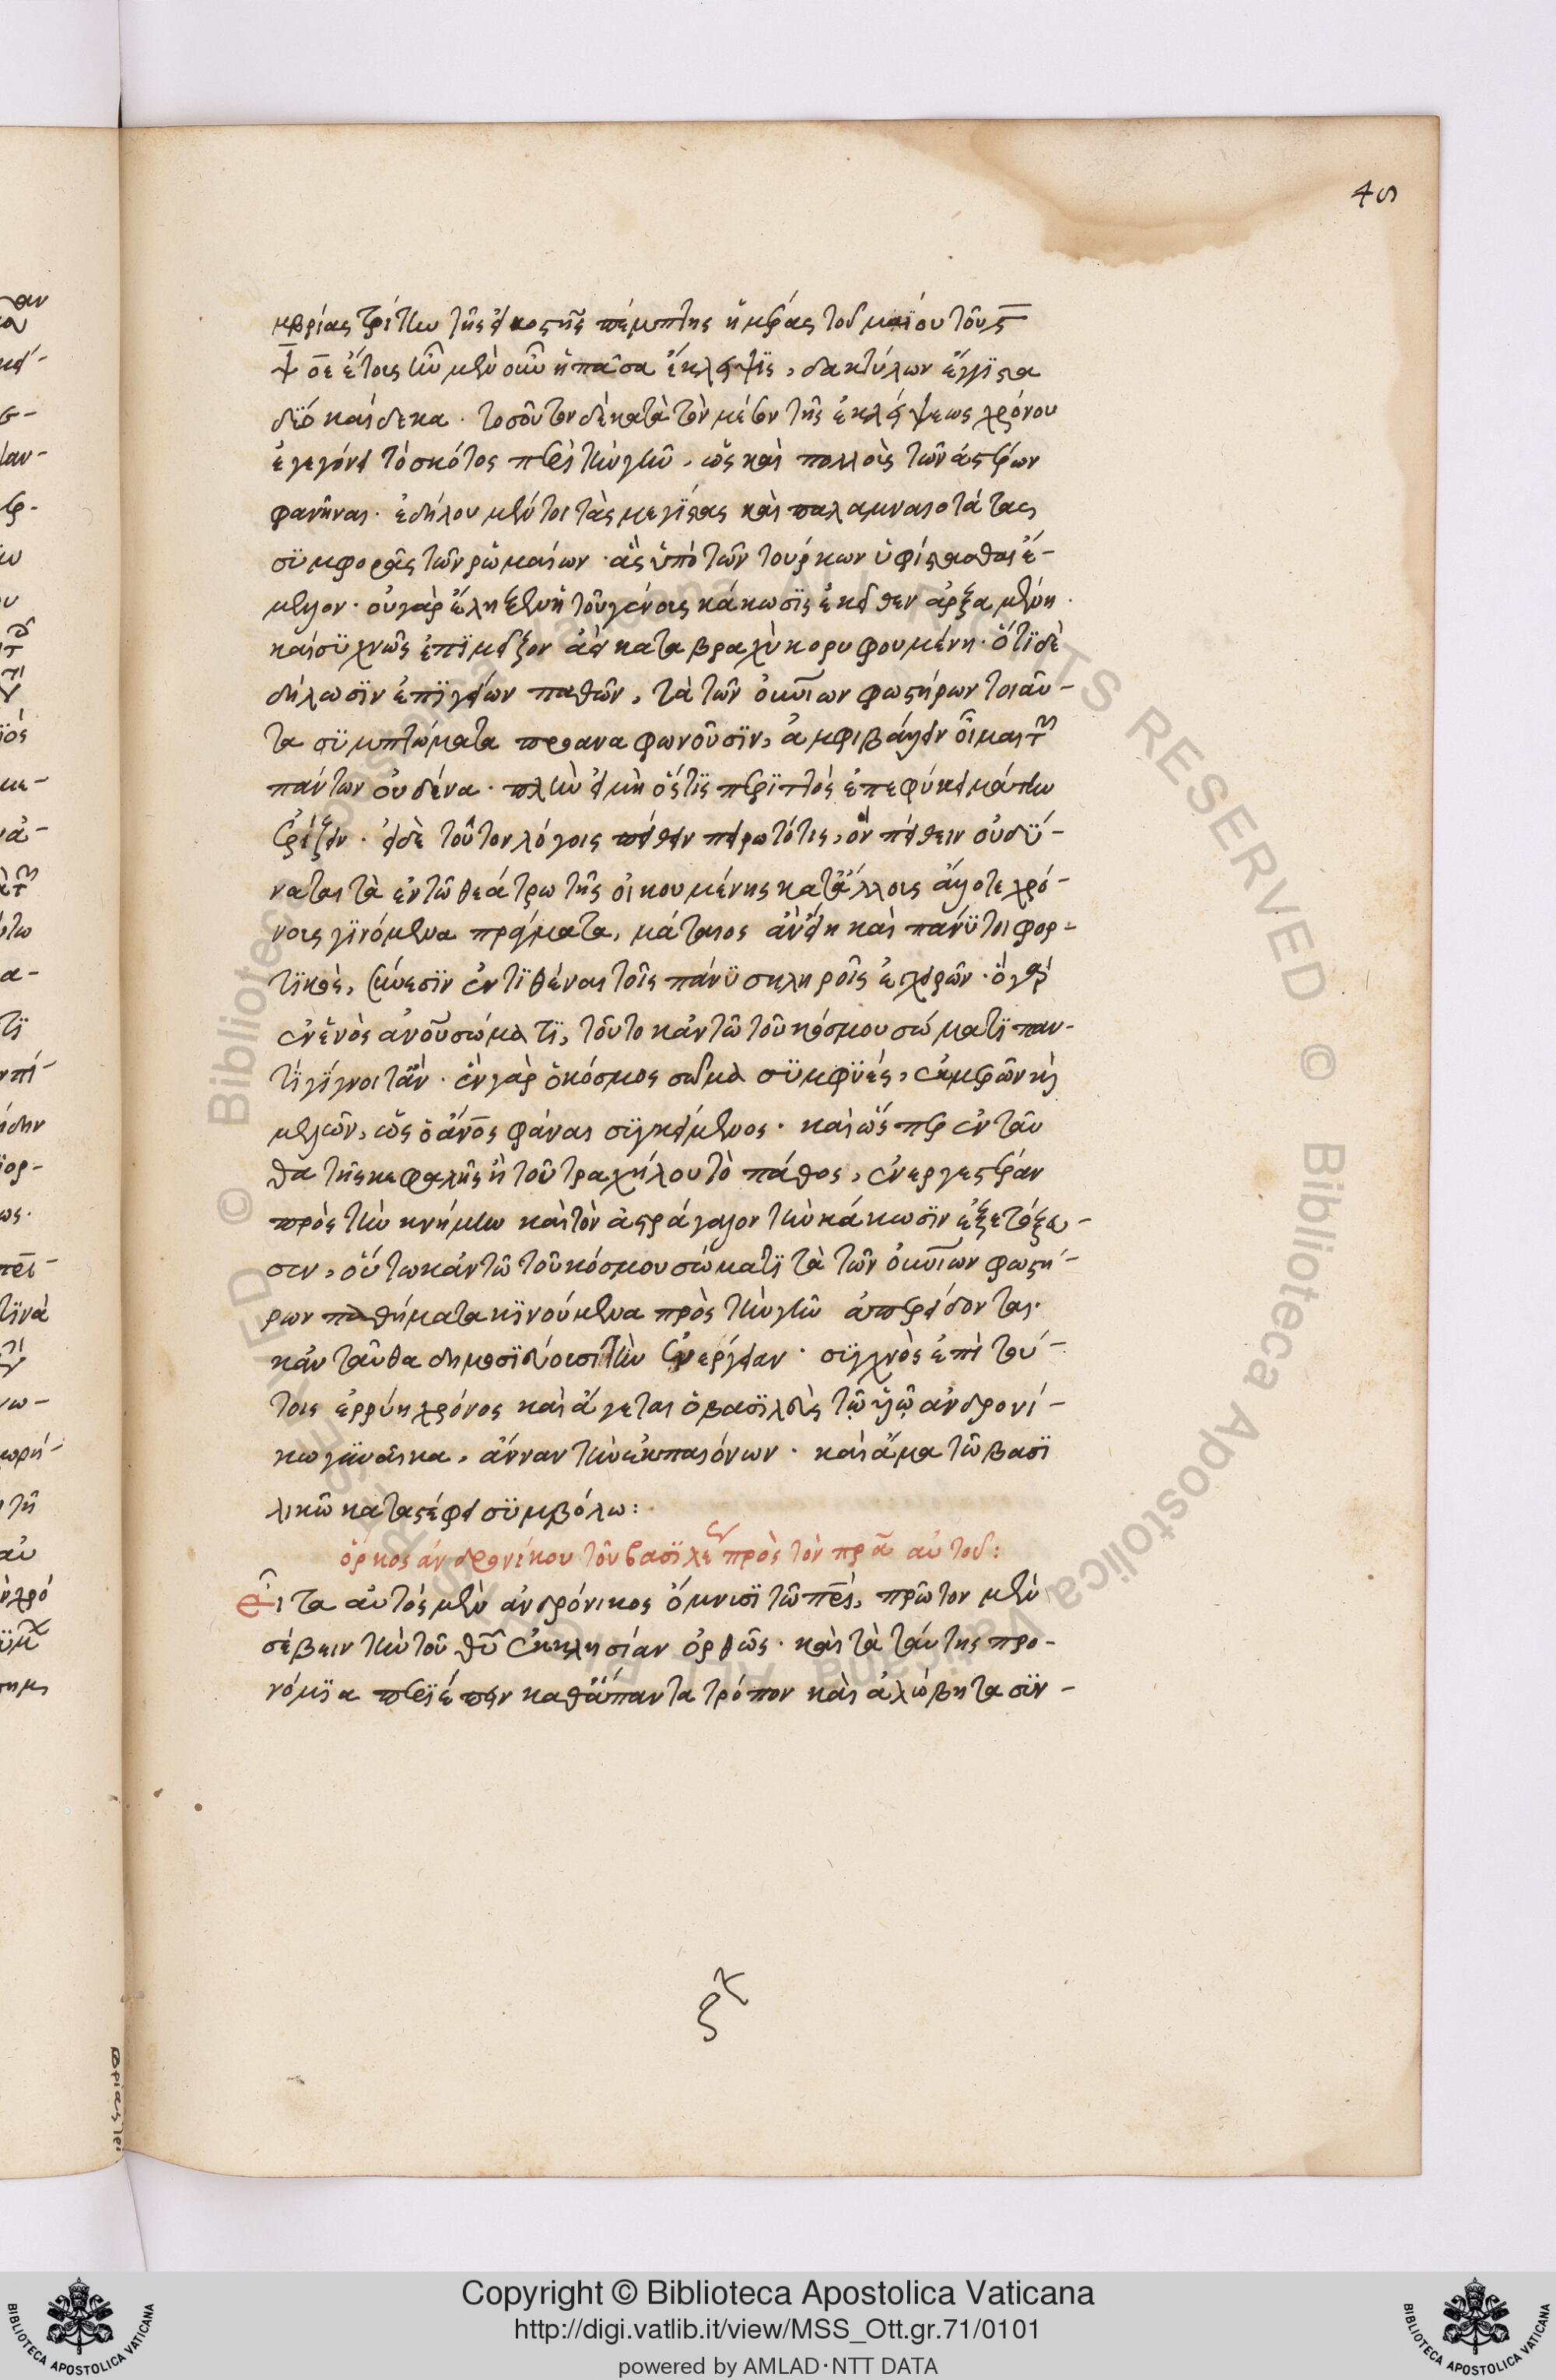 4ϛ
μβρίας τρίτην τῆς εἰκοστῆς πέμπτης ἡμέρας τοῦ μαΐου τοῦ ϛ
ψοε ἔτους ἦν μὲν οὖν ἡ πᾶσα ἔκλειψϊς, δακτύλων ἔγγϊστα
δϋοκαίδεκα. τοσοῦτον δὲ κατὰ τὸν μέσον τῆς ἐκλείψεως χρόνον
ἐγεγόνει τὸ σκότος περὶ τὴν γῆν, ὡς καὶ πολλοὺς τῶν ἀστέρων
φανῆναι. ἐδήλου μέντοι τὰς μεγίστας καὶ παλαμναιοτάτας
σϋμφορὰς τῶν ρωμαίων. ἃς ὑπὸ τῶν τούρκων ὑφίστασθαι ἔ-
μελλον. οὐ γὰρ ἔληξεν ἡ τοῦ γένους κάκωσϊς ἐκεῖθεν ἀρξαμένη.
καὶ σϋχνῶς ἐπϊ μεῖζον ἀεὶ κατα βραχὺ κορυφουμένη. ὅτϊ δὲ
δήλωσϊν ἐπϊγείων παθῶν, τὰ τῶν οὐνίων φωστήρων τοιαῦ-
τα σϋμπτώματα προαναφωνοῦσϊν, ἀμφιβάλλειν οἶμαι τῶν
πάντων οὐδένα. πλὴν εἰ μὴ ὅστϊς περϊττὸς ἐπεφύκει μάτην
ἐρίζειν. εἰ δὲ τοῦτον λόγοις πείθειν πειρῶτό τις, ὃν πείθειν οὐ δϋ-
ναται τὰ ἐν τῶ θεάτρω τῆς οἰκουμένης κατ' ἄλλους ἄλλοτε χρό-
νους γϊνόμενα πράγματα, μάταιος ἂν εἴη καὶ πάνϋ τοι φορ-
τϊκὸς, σύνεσϊν ἐντϊθέναι τοῖς πάνϋ σκληροῖς ἐπιχειρῶν. ὃ γὰρ
ἐν ἑνὸς ἀνου σώματϊ, τοῦτο κἀν τῶ τοῦ κόσμου σώματϊ παν-
τϊ γίγνοιτ' ἄν. ἓν γὰρ ὁ κόσμος σῶμα σϋμφϋές, ἐκ μερῶν καὶ
μελῶν, ὡς ὁ ἄνος φάναι σϋγκείμενος. καὶ ὥσπερ ἐνταῦ
θα τῆς κεφαλῆς ἢ τοῦ τραχήλου τὸ πάθος, ἐνεργεστέραν
πρὸς τὴν κνήμην καὶ τὸν ἀστράγαλον τὴν κάκωσϊν ἐξετόξευ-
σεν, οὕτω κἀν τῶ τοῦ κόσμου σώματϊ τὰ τῶν οὐνίων φωστή-
ρων παθήματα κϊνούμενα πρὸς τὴν γῆν ἀπερείδονται.
κἀνταῦθα δημοσϊεύουσι τὴν ἐνέργειαν. σϋχνὸς ἐπὶ τού-
τοις ἐρρύη χρόνος καὶ ἄγεται ὁ βασϊλεὺς τῶ υἱῶ ἀνδρονί-
κω γϋναῖκα, ἄνναν τὴν ἐκ παιόνων. καὶ ἅμα τῶ βασϊ
λικῶ καταστέφει σϋμβόλω:
ὅρκος ἀνδρονίκου τοῦ βασϊλέως πρὸς τὸν πρα αὐτοῦ:
Εἶτα αὐτὸς μὲν ἀνδρόνικος ὄμνυσϊ τῶ πρὶ, πρῶτον μὲν
σέβειν τὴν τοῦ θυ ἐκκλησίαν ὀρθῶς. καὶ τὰ ταύτης προ-
νόμϊα περϊέπειν καθ' ἅπαντα τρόπον καὶ ἀλώβητα σϋν-
βρίας τρί
Copyright © Biblioteca Apostolica Vaticana
http://digi.vatlib.it/view/MSS_Ott.gr.71/0101
powered by AMLAD·NTT DATA
BIBLIOTECA APOSTOLICA VATICANA
BIBLIOTECA APOSTOLICA VATICANA